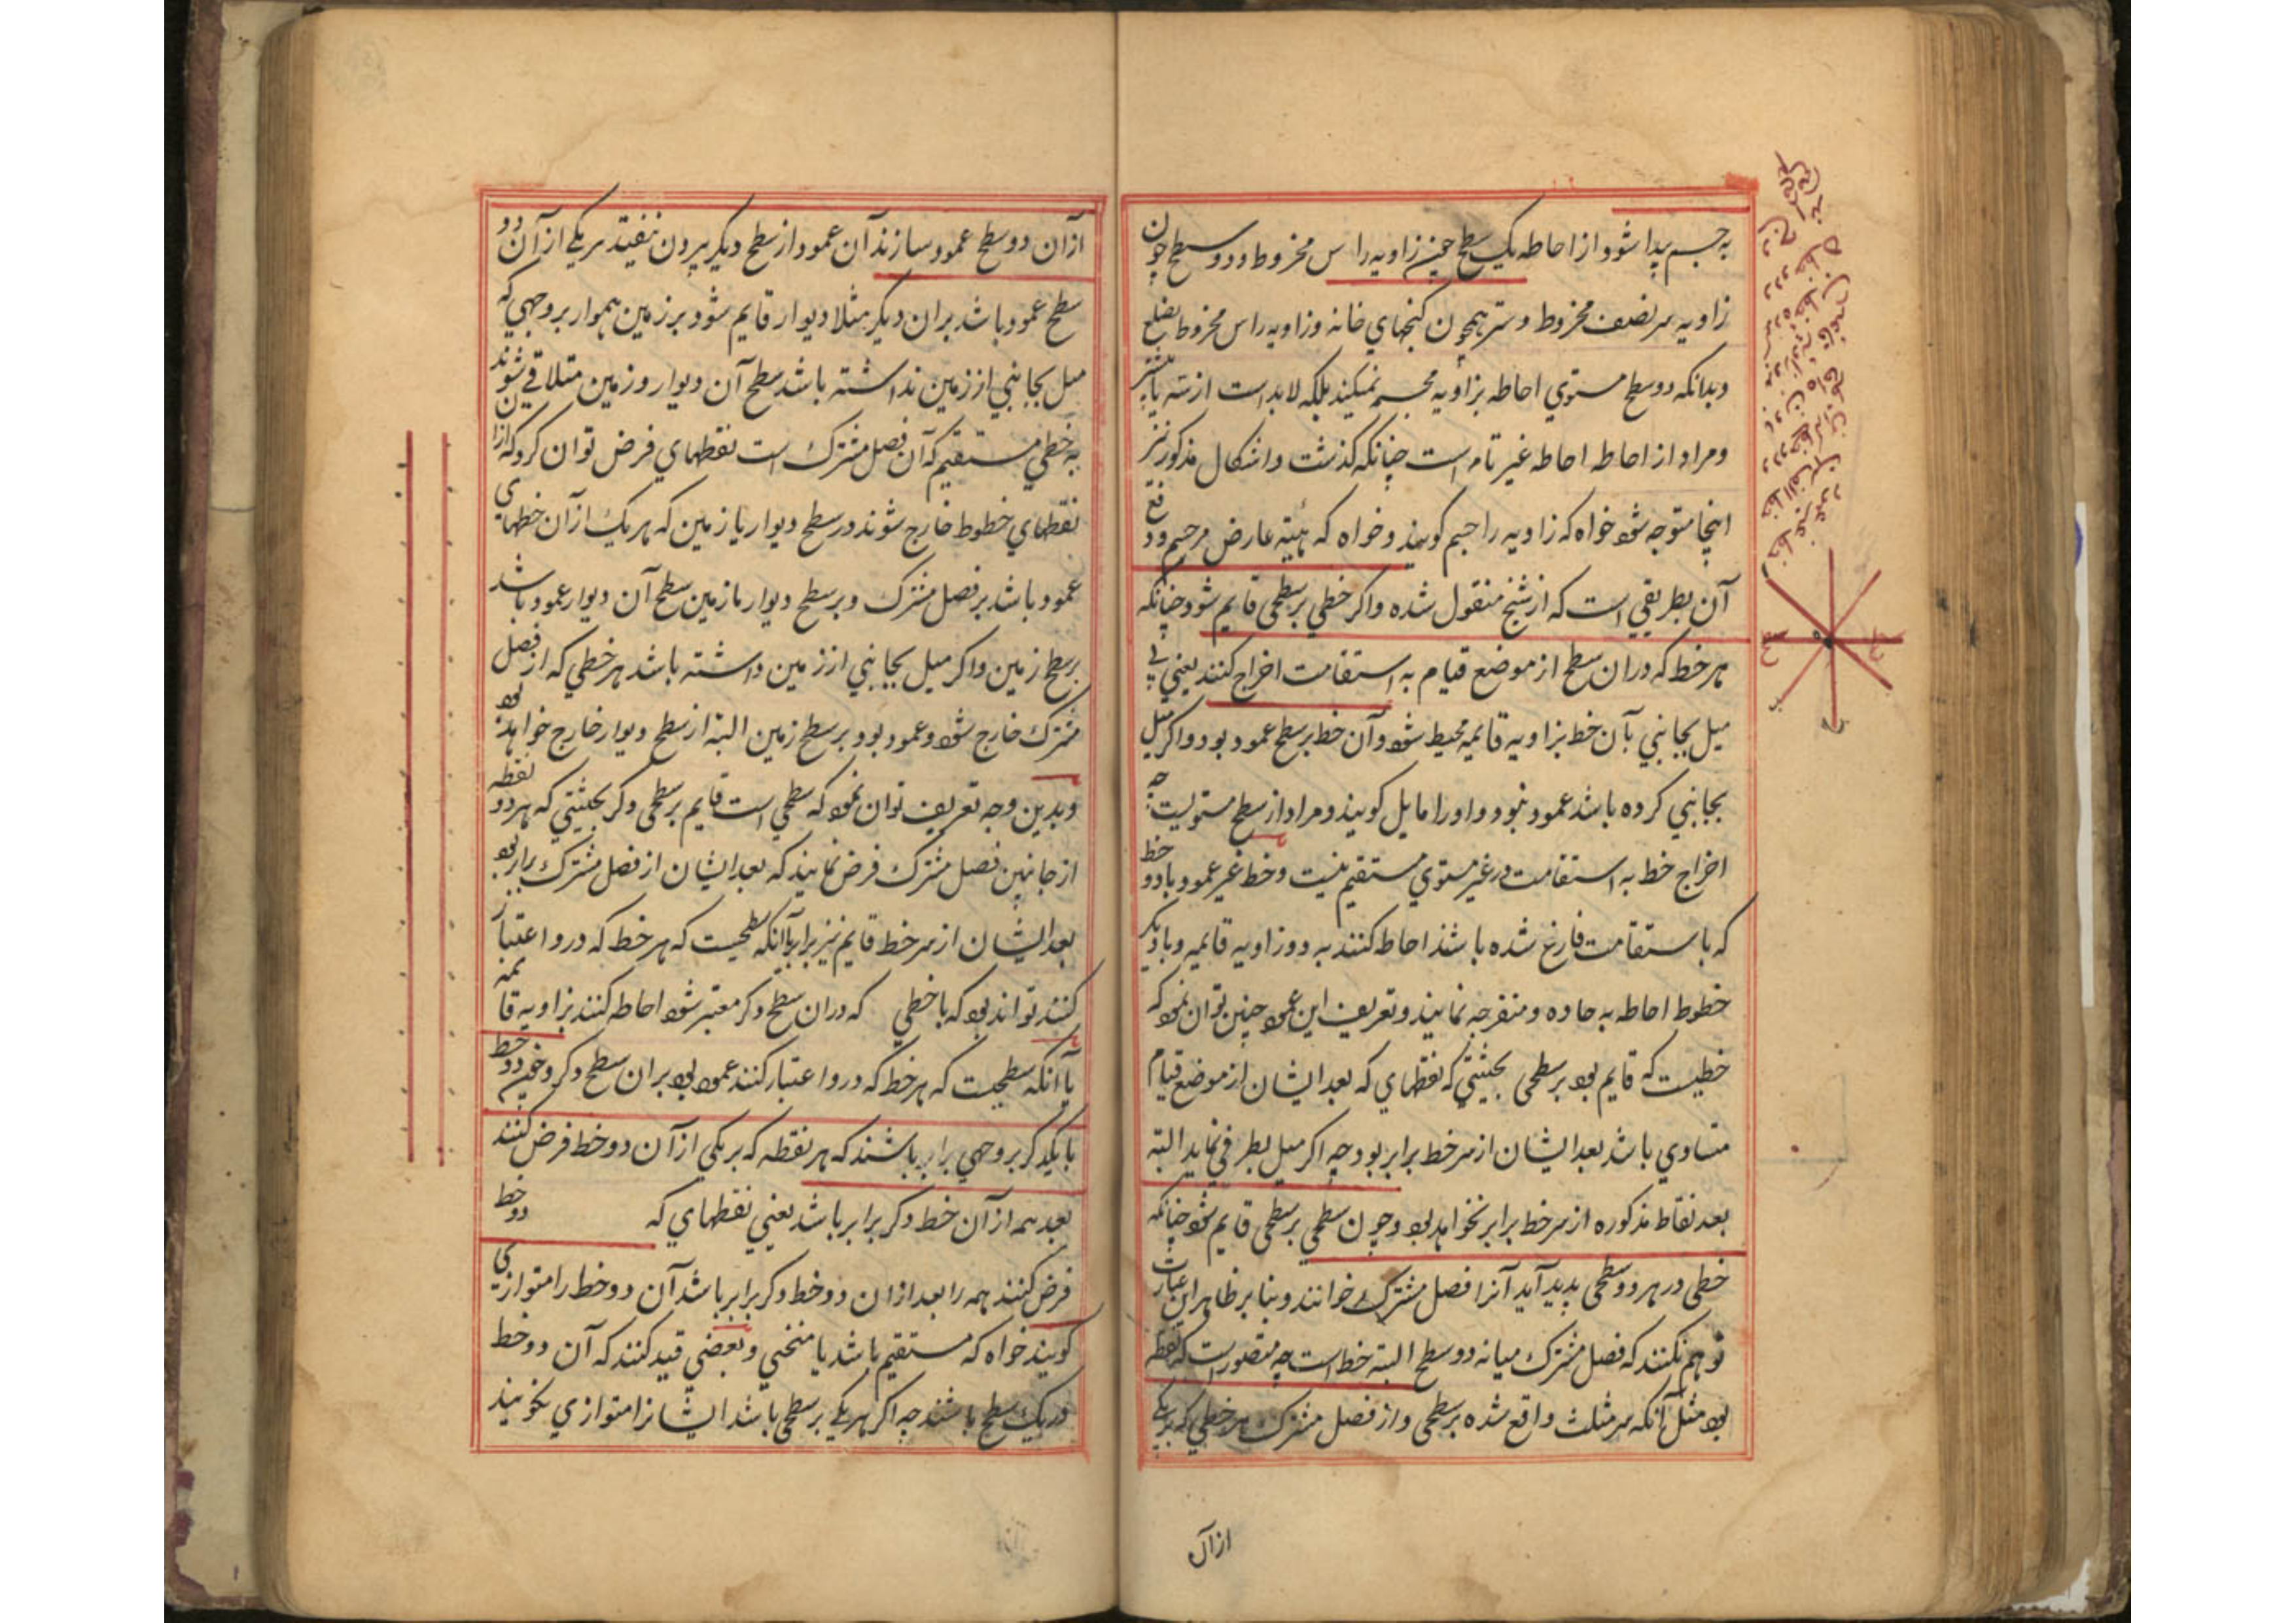 به جسم پیدا شود و از احاطه یک سطح چنین زاویه راس مخروط و دو سطح چون
زاویه سر نصف مخروط و سه همچون کنجهای خانه و زاویه راس مخروط مضلع
و بدانکه دو سطح مستوی احاطه بزاویه مجسم نمیکند بلکه لابد است از سه یا بیشتر
و مراد از احاطه احاطه غیر تامه است چنانکه گذشت و اشکال مذکور نیز
اینجا متوجه شود خواه که زاویه را جسم گویند و خواه که هیئه عارض مر جسم و دفع
آن بطریقی است که از شیخ منقول شده و اگر خطی بر سطحی قایم شود چنانکه
هر خط که در ان سطح از موضع قیام به استقامت اخراج کنند یعنی بی
میل بجانبی بآن خط بزاویه قایمه محیط شود و آن خط بر سطح عمود بود و اگر میل
بجانبی کرده باشد عمود نبود و او را مایل گویند و مراد از سطح مستویست چه
اخراج خط به استقامت در غیر مستوی مستقیم نیست و خط غیر عمود با دو خط
که با ستقامت فارغ شده باشند احاطه کنند به دو زاویه قایمه و با دیگر
خطوط احاطه به حاده و منفرجه نمایند و تعریف این عمود چنین توان نمود که
خطیست که قایم بود بر سطحی بحیثیتی که نقطهای که بعد ایشان از موضع قیام
متساوی باشد بعد ایشان از سر خط برابر بود چه اگر میل بطرفی نماید البته
بعد نقاط مذکوره از سر خط برابر نخواهد بود و چون سطحی بر سطحی قایم شود چنانکه
خطی در هر دو سطحی پدید آید آنرا فصل مشترک خوانند و بنا بر ظاهر این عبارت
توهم نکنند که فصل مشترک میانه دو سطح البته خط است چه متصور است که نقطه
بود مثل آنکه سر مثلث واقع شده بر سطحی و از فصل مشترک هر خطی که بر یکی
از آن
از ان دو سطح عمود سازند آن عمود از سطح دیگر بیرون نیفتد هر یکی از آن دو
سطح عمود باشد بران دیگر مثلا دیوار قایم شود بر زمین هموار بر وجهی که
میل بجانبی از زمین نداشته باشد سطح آن دیوار و زمین متلاقی شوند
به خطی مستقیم که آن فصل مشترک است نقطهای فرض توان کرد که از ان
نقطهای خطوط خارج شوند در سطح دیوار یا زمین که هر یک از آن خطهای
عمود باشد بر فصل مشترک و بر سطح دیوار یا زمین سطح آن دیوار عمود باشد
بر سطح زمین و اگر میل بجانبی از زمین داشته باشد هر خطی که از فصل
مشترک خارج شود و عمود بود بر سطح زمین البته از سطح دیوار خارج خواهد بود
و بدین وجه تعریف توان نمود که سطحی است قایم بر سطحی دگر بحیثیتی که هر دو نقطه
از جانبین فصل مشترک فرض نمایند که بعد ایشان از فصل مشترک برابر بود
بعد ایشان از سر خط قایم نیز برابر یا آنکه سطحیست که هر خط که در و اعتبار
کنند تواند بود که با خطی که دران سطح دگر معتبر شود احاطه کنند بزاویه قایمه
یا آنکه سطحیست که هر خط که در و اعتبار کنند عمود بود بران سطح دگر و چون دو خط
با یکدگر بر وجهی برابر باشند که هر نقطه که بر یکی از آن دو خط فرض کنند
بعد همه از آن خط دگر برابر باشد یعنی نقطهای که دو خط
فرض کنند همه را بعد از ان دو خط دگر برابر باشد آن دو خط را متوازی
گویند خواه که مستقیم باشد یا منحنی و بعضی قید کنند که آن دو خط
در یک سطح باشند چه اگر هر یکی بر سطحی باشد ایشانرا متوازی نخوانند